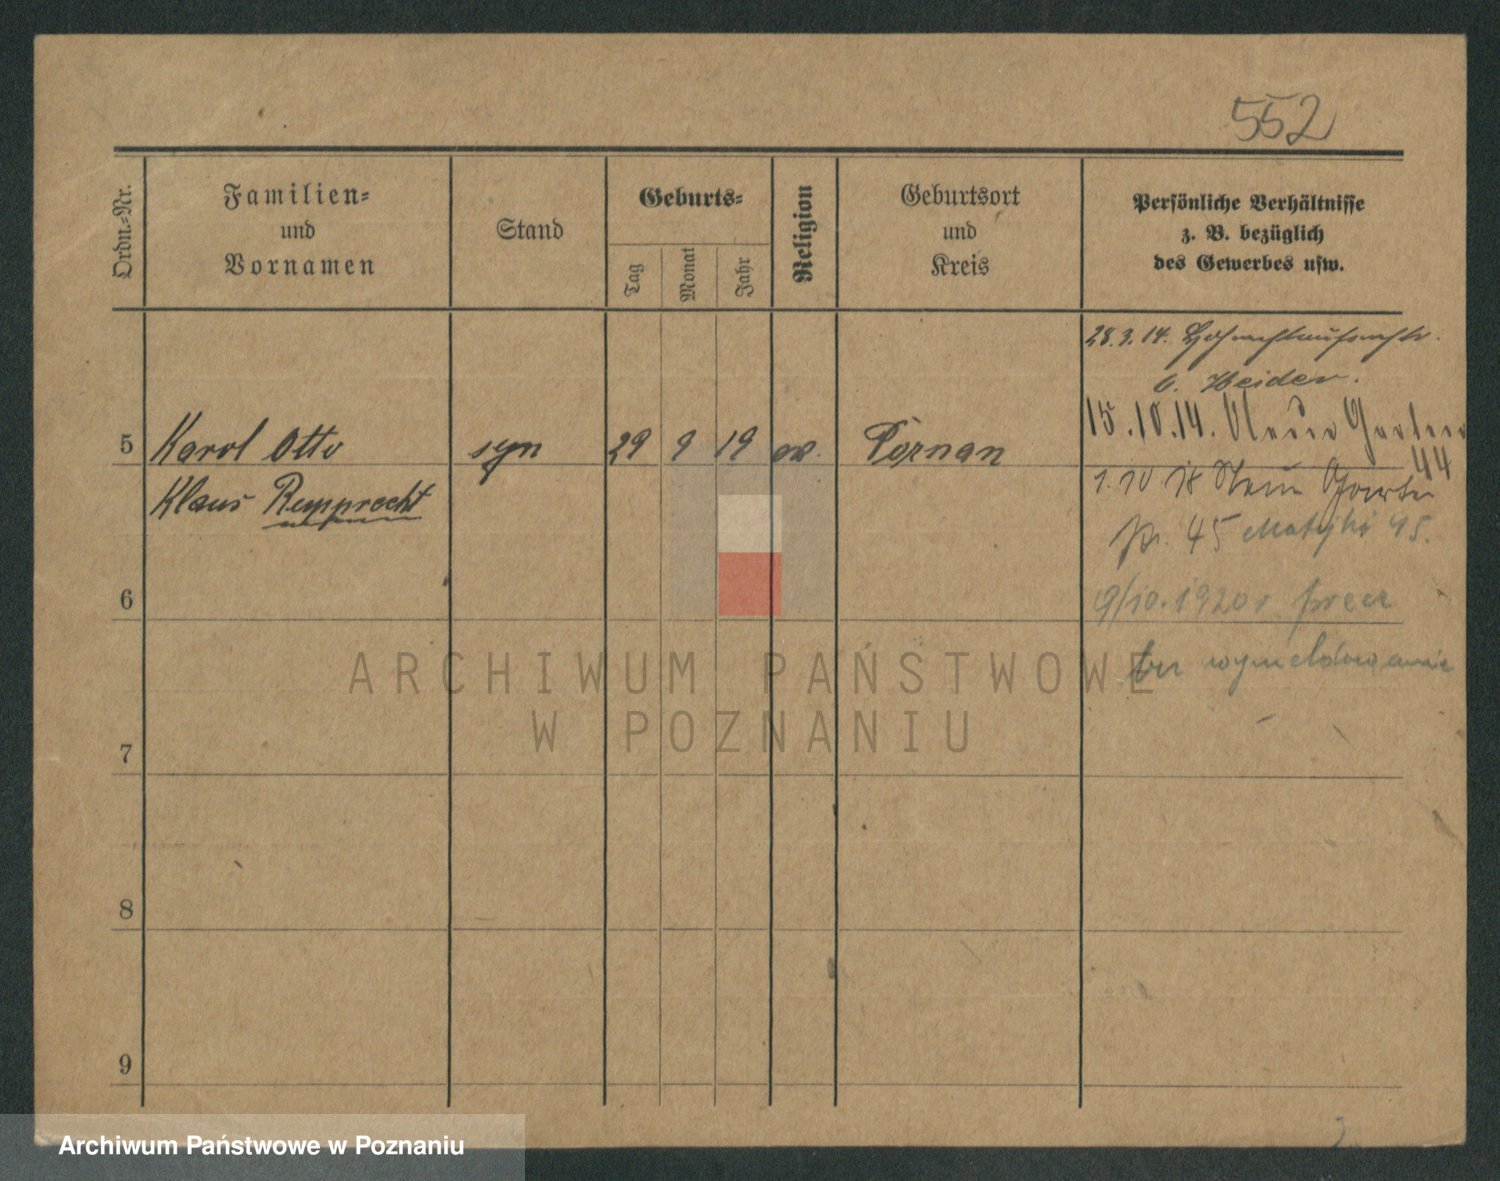 552
Ordn.-Nr.
Familien-
und
Vornamen
Stand
Geburts-
Tag
Monat
Jahr
Religion
Geburtsort
und
Kreis
Persönliche Verhältnisse
z. B. bezüglich
des Gewerbes usw.
28.3.14.
b. Heider.
5 Karol Otto syn 29 9 19 ew. Poznan
Klaus Rupprecht
15.10.14. Neue Garten
44
1. 10 18 Neue Garten
45 Matejki 45.
6
9/10.1920r precz
bez wymeldowania
7
8
9
ARCHIWUM PAŃSTWOWE
W POZNANIU
Archiwum Państwowe w Poznaniu